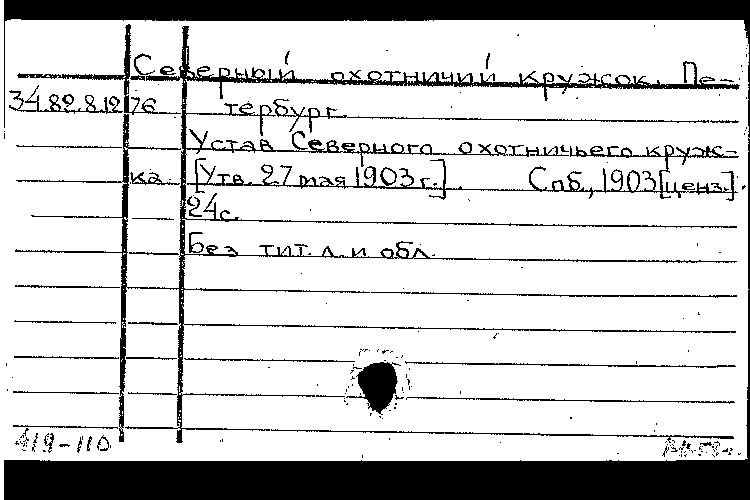 Северный охотничий кружок. Пе-
34.82.8.1276 тербург.
Устав Северного охотничьего круж-
ка. [Утв. 27 мая 1903 г.]. Спб., 1903 [ценз.].
24с.
Без тит. л. и обл.
419-110